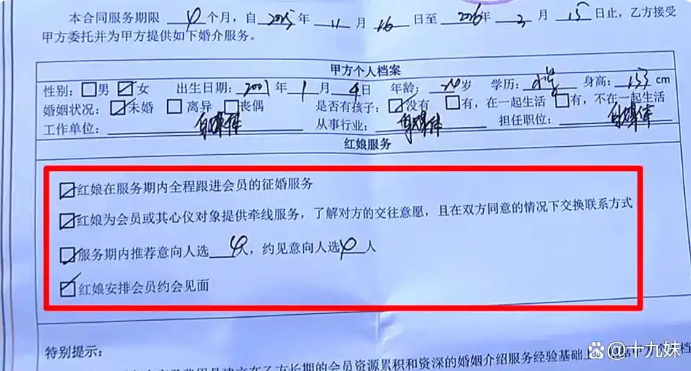 本合同服务期限 4 个月，自 2025 年 11 月 16 日至 2026 年 3 月 15 日止，乙方接受
甲方委托并为甲方提供如下婚介服务。
甲方个人档案
性别：□男 ☑女 出生日期：2001 年 1 月 4 日 年龄：24 岁 学历： 身高：153 cm
婚姻状况：☑未婚 □离异 □丧偶 是否有孩子：☑没有 □有，在一起生活 □有，不在一起生活
工作单位：自媒体 从事行业：自媒体 担任职位：自媒体
红娘服务
☑红娘在服务期内全程跟进会员的征婚服务
☑红娘为会员或其心仪对象提供牵线服务，了解对方的交往意愿，且在双方同意的情况下交换联系方式
☑服务期内推荐意向人选 4人，约见意向人选 4 人
☑红娘安排会员约会见面
特别提示：
建立在乙方长期的会员资源累积和资深的婚姻介绍服务经验基础上
Bai 十九妹